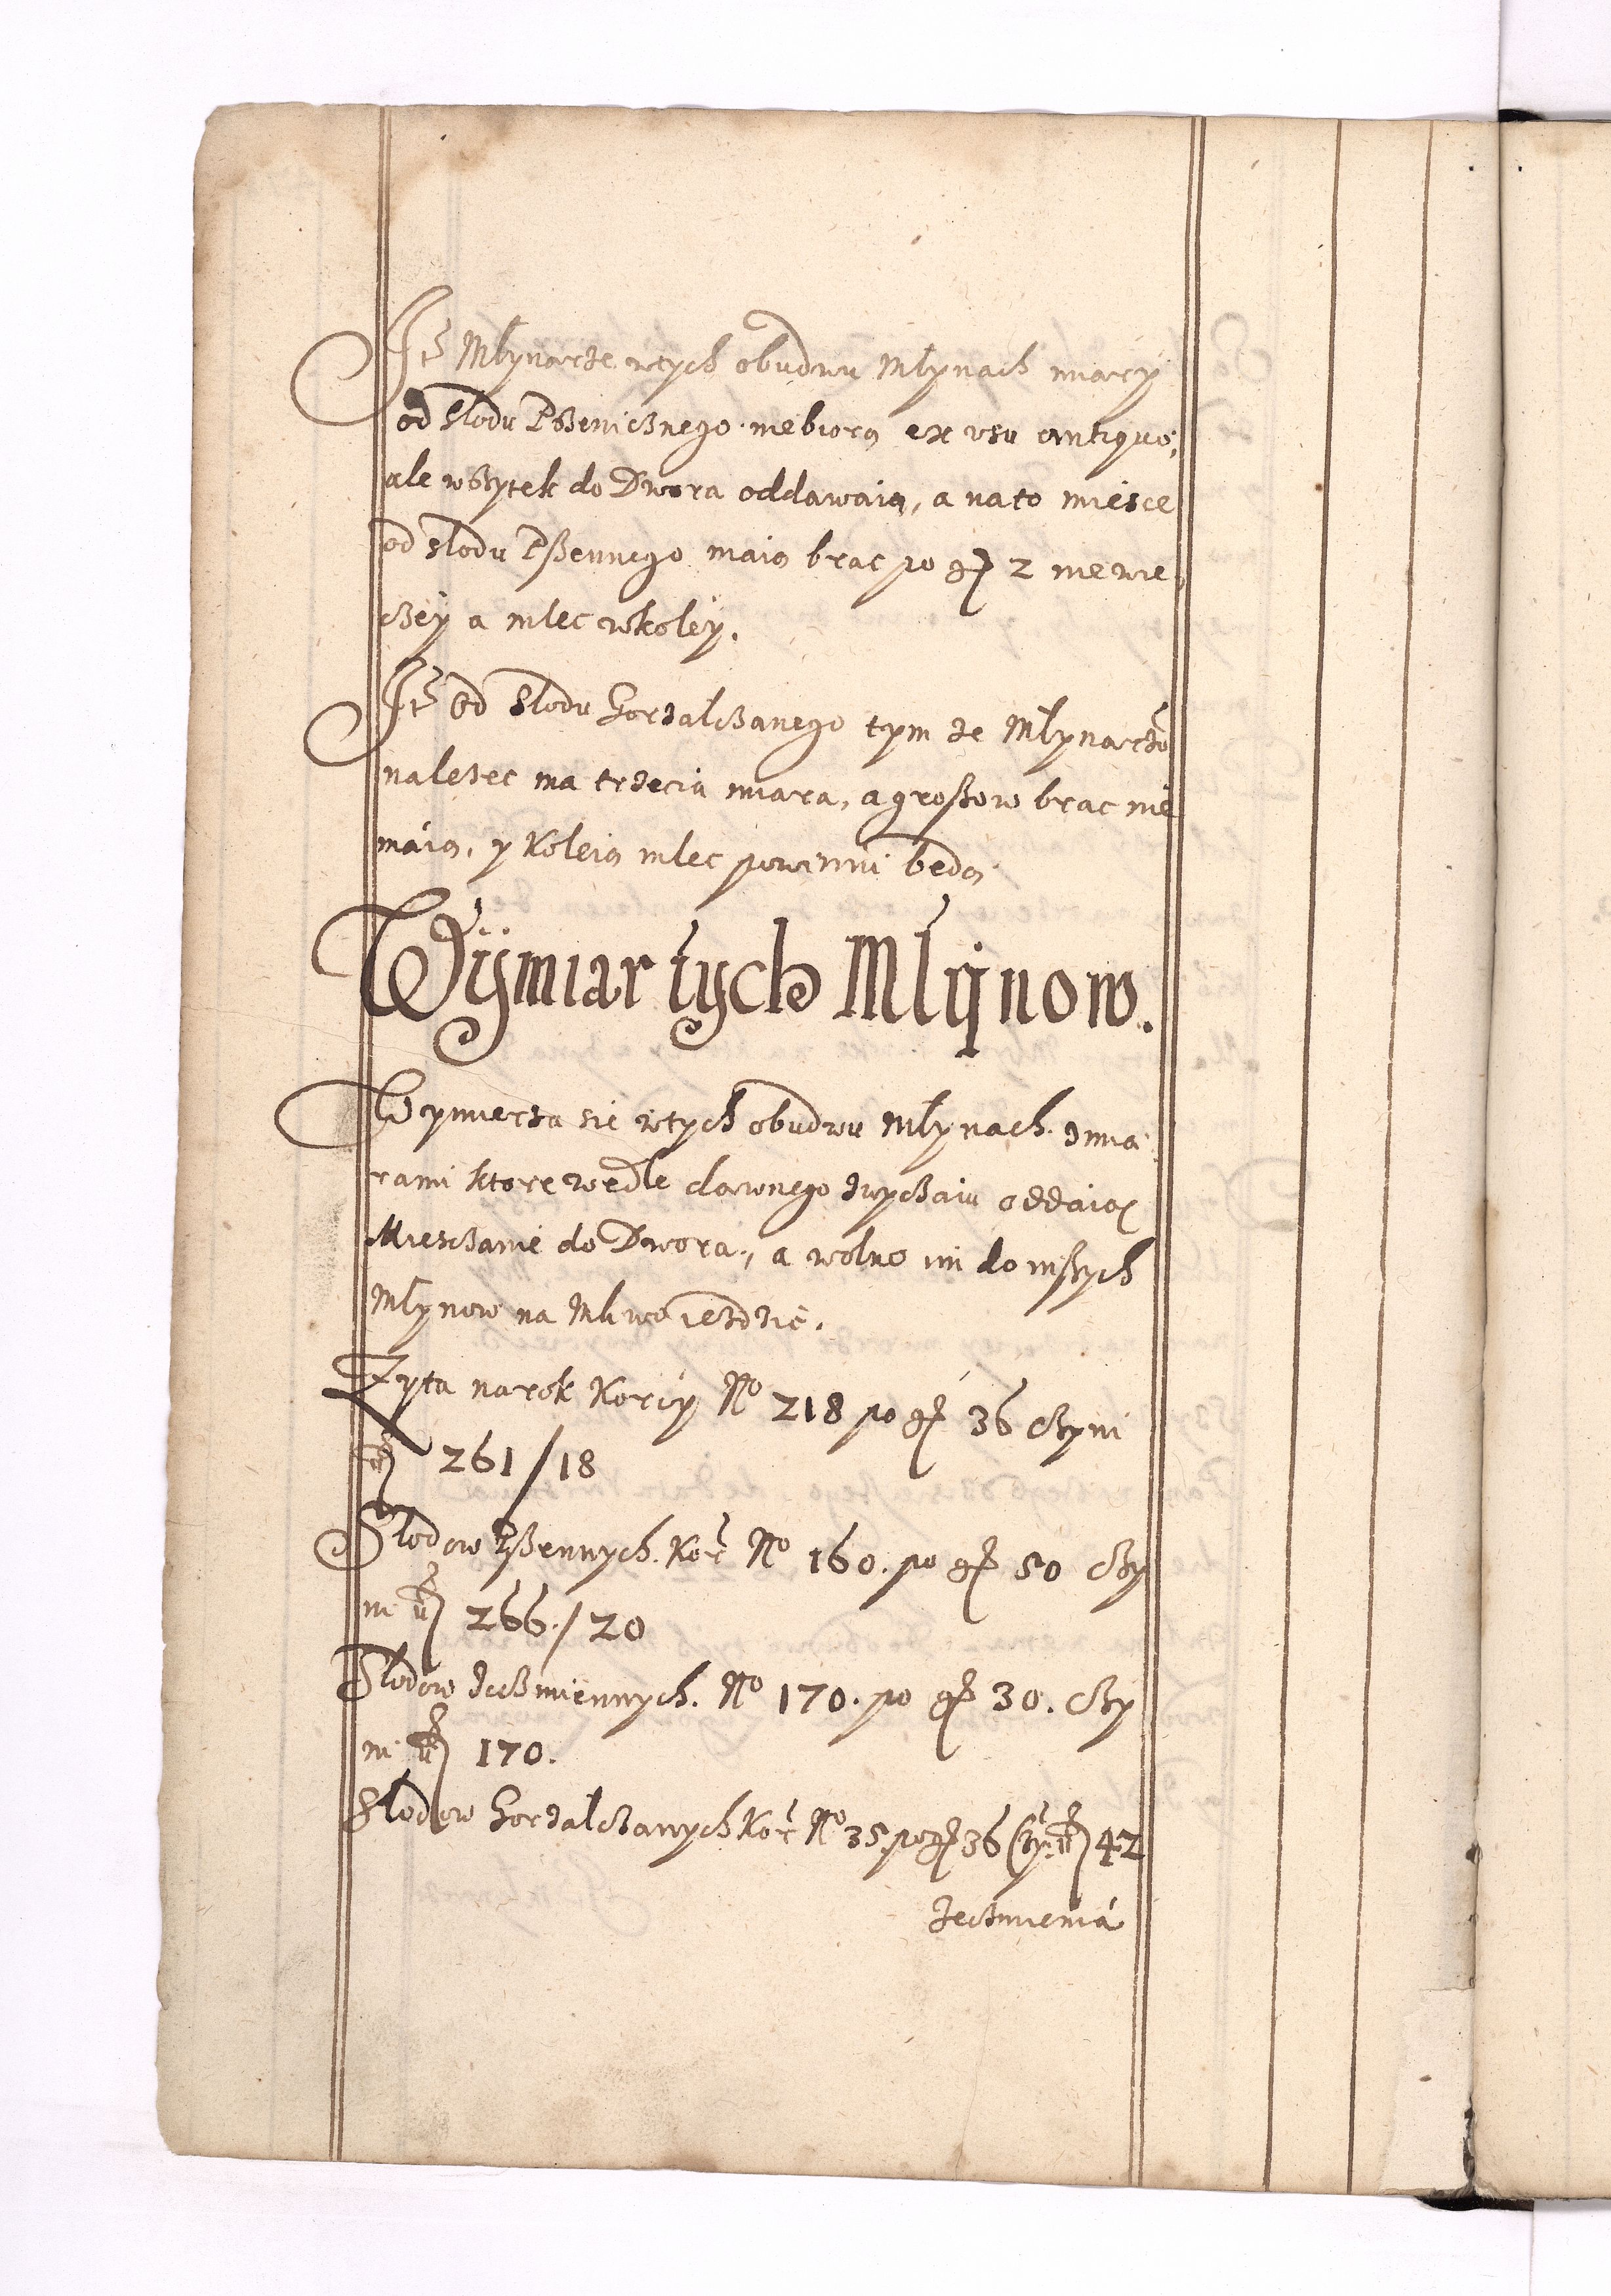 Jt Młynarze wtych obudwu Młynach miary
od słodu Pszenicznego niebiorą ex usu antiquo,
ale wszytek do Dwora oddawaią, a nato miesce
od słodu Pßennego maią brac po gr 2 niewie,
czey a mlec wkoley.
Jt Od Słodu Gorzalczanego tym ze Młynarzō
nalezec ma trzecia miara, a großow brac nie
maią, y Koleią mlec powinni będą
Wÿmiar tych Młÿnow.
Wymierza sie wtych obudwu Młynach zmia
rami ktore wedle dawnego zwyczaiu oddaią
Miesczanie do Dwora, a wolno im do inßych
Młynow na Mliwo iezdzic.
Zyta narok Korcy No 218 po gr 36 czyni
fl 261/18
Słodow Pßennych. Korc No 160. po gr 50 czy
ni fl 266./20
Słodow Jeczmiennych. No 170. po gr 30. czy
ni fl 170.
Słodow Gorzalczanych Korc No 35. po gr 36 czy. fl 42
Jeczmieniá